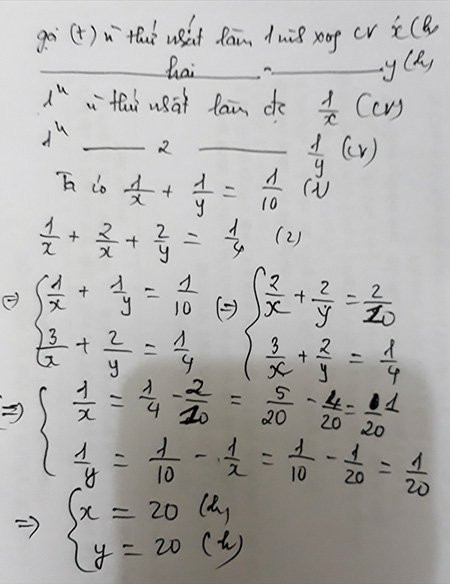 gọi (t) ng thứ nhất làm 1 mình xong cv x (h)
hai y (h)
1h ng thứ nhất làm đc 1/x (cv)
1h 2 1/y (cv)
Ta có 1/x + 1/y = 1/10 (1)
1/x + 2/x + 2/y = 1/4 (2)
=> { 1/x + 1/y = 1/10 (=> { 2/x + 2/y = 2/10
3/x + 2/y = 1/4 3/x + 2/y = 1/4
=> { 1/x = 1/4 - 2/10 = 5/20 - 4/20 = 1/20
1/y = 1/10 - 1/x = 1/10 - 1/20 = 1/20
=> { x = 20 (h)
y = 20 (h)